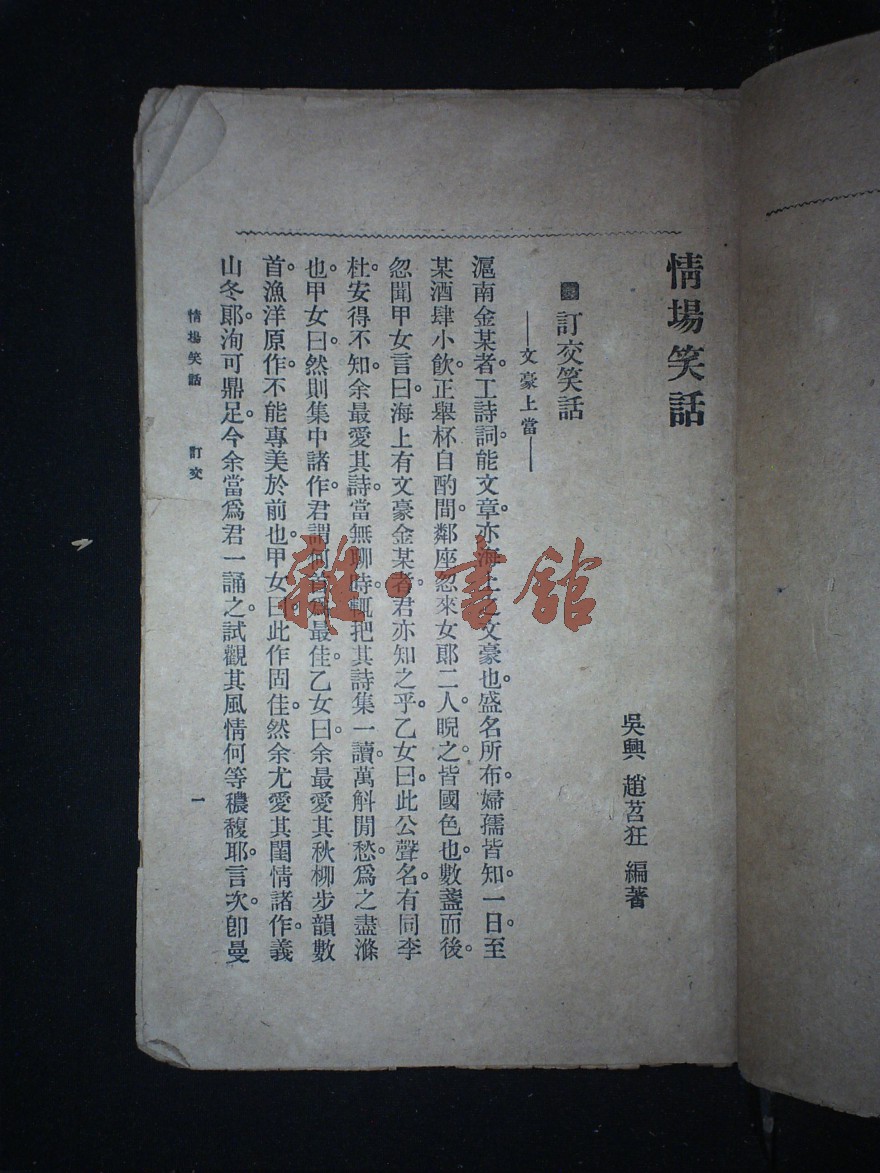 情場笑話
吳興 趙苕狂 編著
訂交笑話
——文豪上當——
滬南金某者。工詩詞。能文章。亦海上文豪也。盛名所布。婦孺皆知。一日。至
某酒肆小飲。正舉杯自酌間。鄰座忽來女郎二人。睨之。皆國色也。數盞而後。
忽聞甲女言曰。海上有文豪金某者。君亦知之乎。乙女曰。此公聲名。有同李
杜。安得不知。余最愛其詩。當無聊時。輒把其詩集一讀。萬斛閒愁。爲之盡滌
也。甲女曰。然則集中諸作。君謂何首爲最佳。乙女曰。余最愛其秋柳步韻數
首。漁洋原作。不能專美於前也。甲女曰。此作固佳。然余尤愛其閨情諸作。義
山冬郎。洵可鼎足。今余當爲君一誦之。試觀其風情何等穠馥耶。言次。卽曼
情場笑話 訂交 一
雜·書館